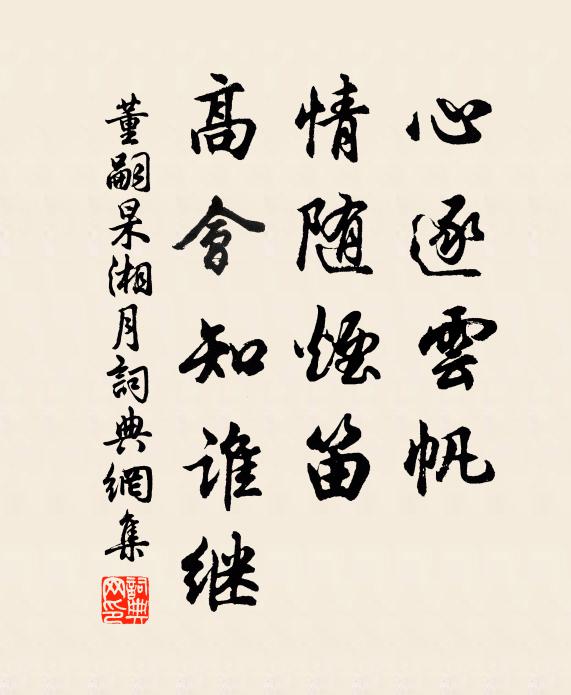 心逐雲帆
情随煙笛
高會知谁继
董嗣杲湘月詞典網集
詞典网印